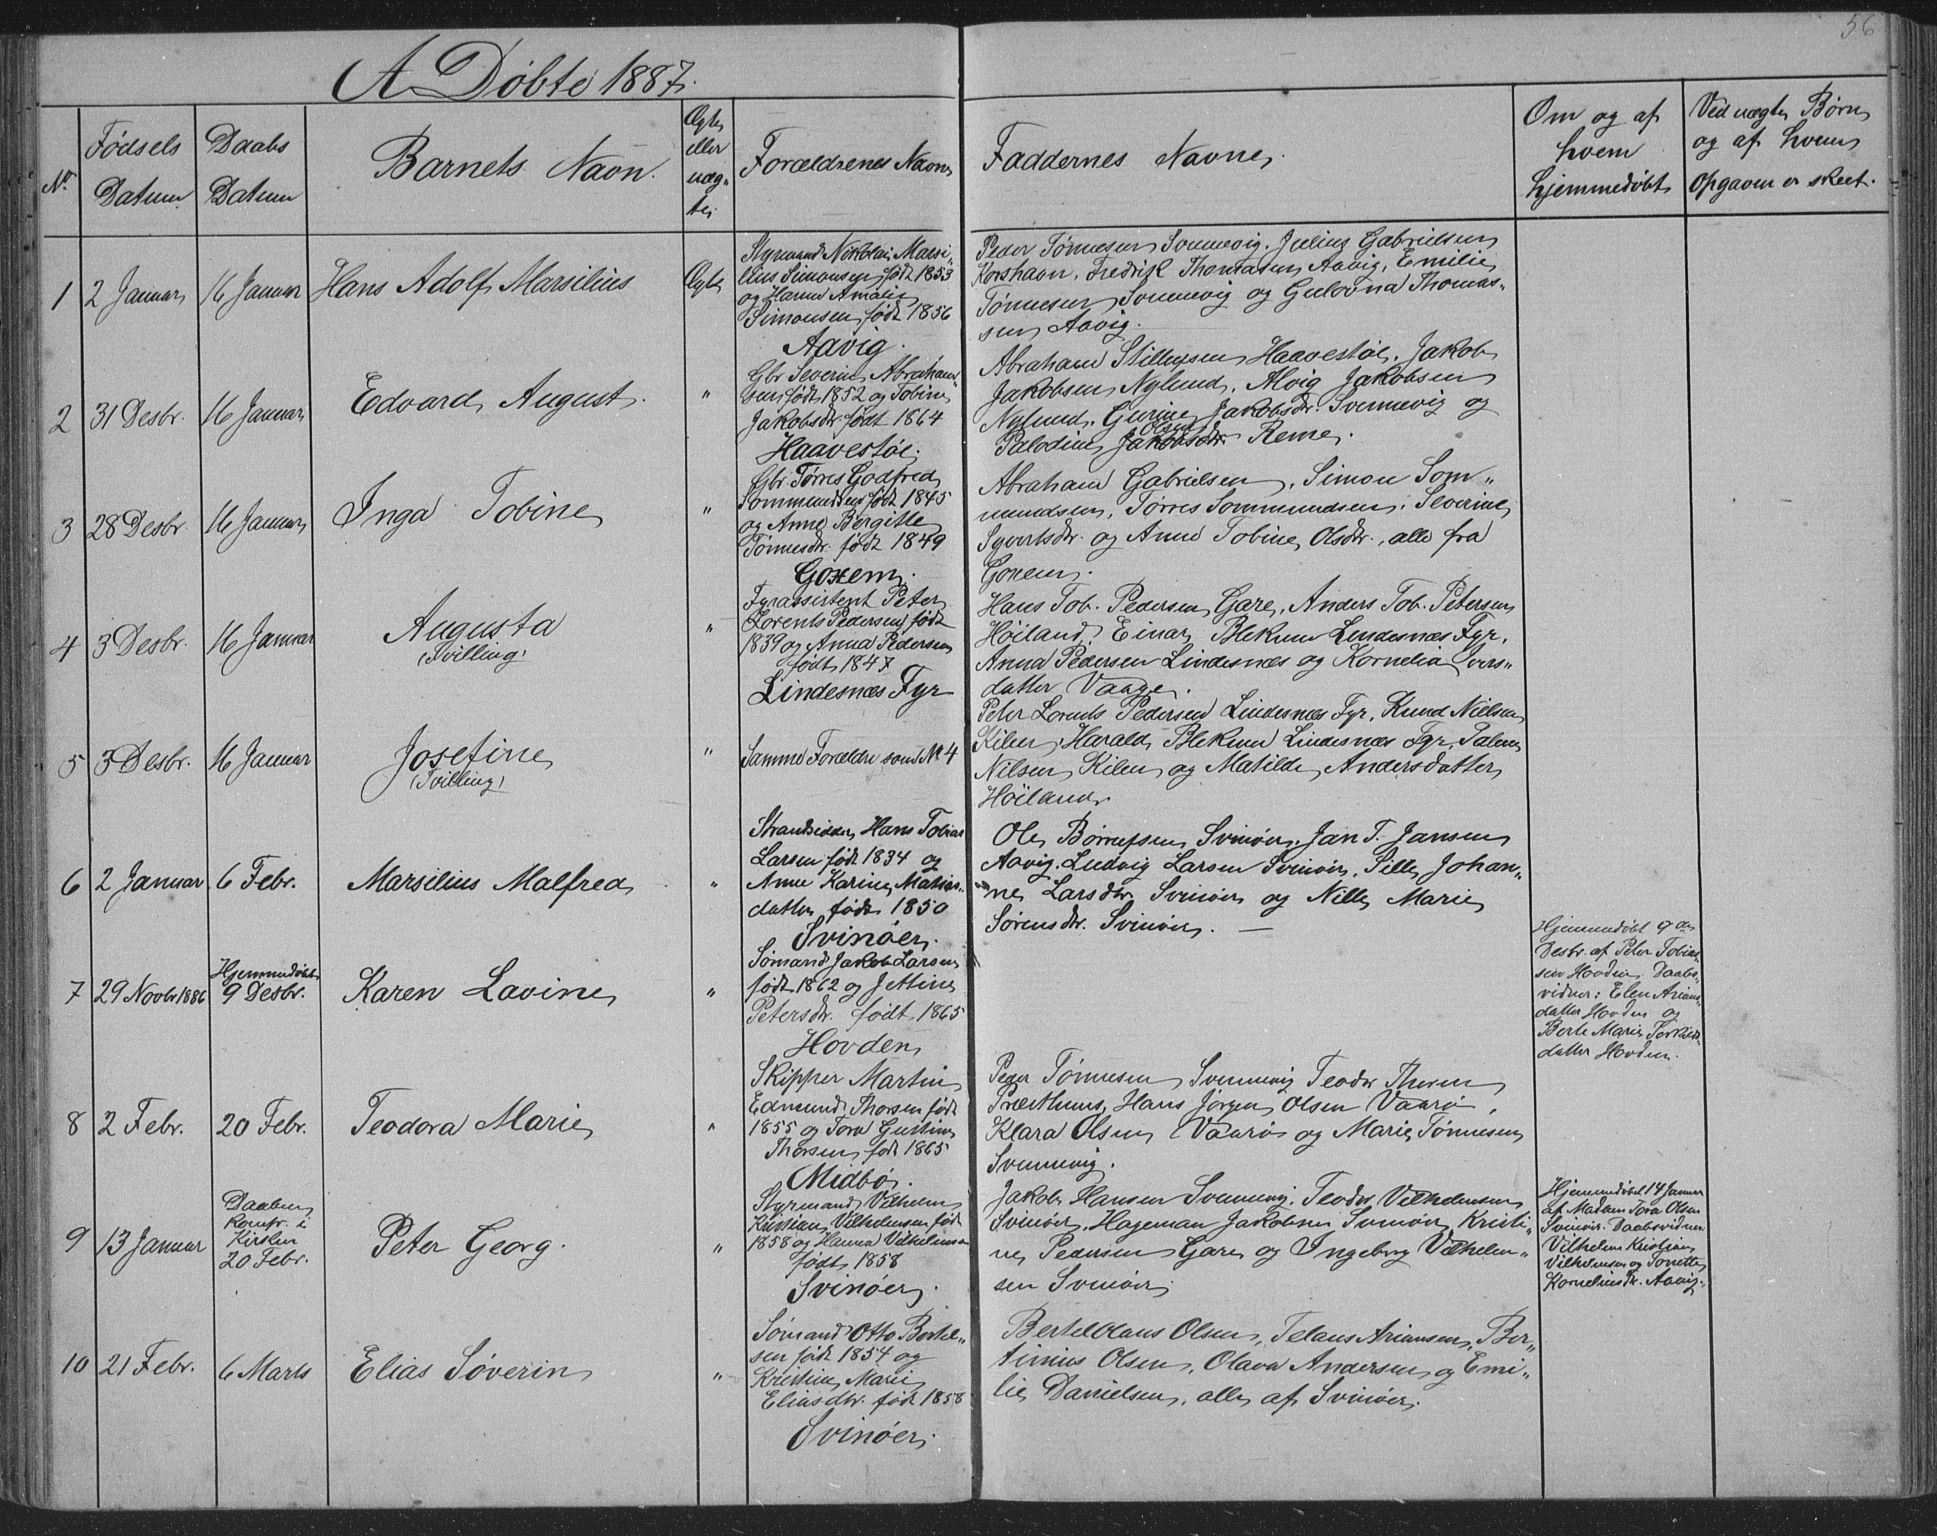 56
A Døbte 1887.
No.
Fødsels Datum
Daabs Datum
Barnets Navn.
Ægte eller uægte
Forældrenes Navne
Faddernes Navne.
Om og af hvem hjemmedøbt
Ved uægte Børn og af hvem Opgaven er skeet.
1
2 Januar
16 Januar
Hans Adolf Marsilius
Ægte
Styrmand Nikolai Marsi-
lius Simonsen født 1853
og Hanne Amalie
Simonsen født 1856
Aavig.
Peder Tønnesen Svennevig. Julius Gabrielsen
Korshavn. Fredrik Thomasen Aavig. Emilie
Tønnesen Svennevig og Gulovna Thomas-
sen Aavig.
2
31 Desbr.
16 Januar
Edvard August.
"
Gbr Severin Abraham-
sen født 1852 og Tobine
Jakobsdr. født 1864
Haavestøl.
Abraham Stillufsen Haavestøl. Jakob
Jakobsen Nylund. Alvig Jakobsen
Nylund. Gurine Jakobsdr. Svennevig og
Olsen
Palodine Jakobsdr. Reme.
3
28 Desbr.
16 Januar
Inga Tobine
"
Gbr. Tørres Godfred
Sommundsen født 1845
og Anne Bergitte
Tønnesdr. født 1849
Goxem.
Abraham Gabrielsen, Simon Som-
mundsen, Tørres Sommundsen, Severine
Syvertsdr. og Anne Tobine Olsdr., alle fra
Goxem.
4
3 Desbr.
16 Januar
Augusta
(Tvilling)
"
Fyrassistent Peter
Lorents Pedersen født
1839 og Anna Pedersen
født 1847
Lindesnæs Fyr
Hans Tob. Pedersen Gare, Anders Tob. Petersen
Høiland, Einar Blekum Lindesnæs Fyr,
Anna Pedersen Lindesnæs og Kornelia Ivers-
datter Vaage.
5
3 Desbr.
16 Januar
Josefine
(Tvilling)
"
Samme Forældre som No 4
Peter Lorents Pedersen Lindesnæs Fyr, Knud Nielsen
Kilen, Harald Blekum Lindesnæs Fyr,
Nilsen Kilen og Matilde Andersdatter
Høiland.
6
2 Januar
6 Febr.
Marsilius Malfred
"
Strandsidder Hans Tobias
Larsen født 1834 og
Anne Karine Matias-
datter født 1850
Svinøer.
Ole Børrufsen Svinøer, Jan T. Jansen
Aavig. Ludvig Larsen Svinøer, Sille Johan-
ne Larsdtr. Svinøer og Nille Marie
Sørensdr. Svinøer. —
7
29 Novbr 1886
Hjemmedøbt
9 Desbr.
Karen Lavine
"
Sømand Jakob Larsen
født 1862 og Jettine
Petersdr. født 1865
Hovden
Hjemmedøbt 9 de
Desbr. af Peter Tobias-
sen Hovden Daabs-
vidner: Elen Arians-
datter Hovden og
Berte Marie
datter Hovden.
8
2 Febr.
20 Febr.
Teodora Marie
"
Skipper Martin
Edmund Thorsen født
1855 og Tora Gustine
Thorsen født 1865
Midbø.
Peder Tønnesen Svennevig Teodor
Præsthuus, Hans Jørgen Olsen Vaarø,
Klara Olsen Vaarø og Marie Tønnesen
Svennevig.
9
13 Januar
Daaben
Konfr. i
Kirken
20 Febr.
Peter Georg.
"
Styrmand Vilhelm
Kristian Vilhelmsen født
1858 og Hanna Vilhelmsen
født 1858
Svinøer.
Jakob Hansen Svennevig. Teodor Vilhelmsen
Svinøer. Hageman Jakobsen Svinøer, Kristi-
ne Pedersen Gare og Ingeborg Vilhelm-
sen Svinøer.
Hjemmedøbt 14 Januar
af Madam Tora Olsen
Svinøer. Daabsvidner
Vilhelm Kristian
Vilhelmsen og Tonette
Korneliusdr. Aavig.
10
21 Febr.
6 Marts
Elias Søverin
"
Sømand Otto Bertel-
sen født 1854 og
Kristine Marie
Eliasdtr. født 1858
Svinøer.
Bertel Olaus Olsen, Telaus Ariansen, Ber-
tinius Olsen, Olava Andersen og Emi-
lie Danielsen, alle af Svinøer.